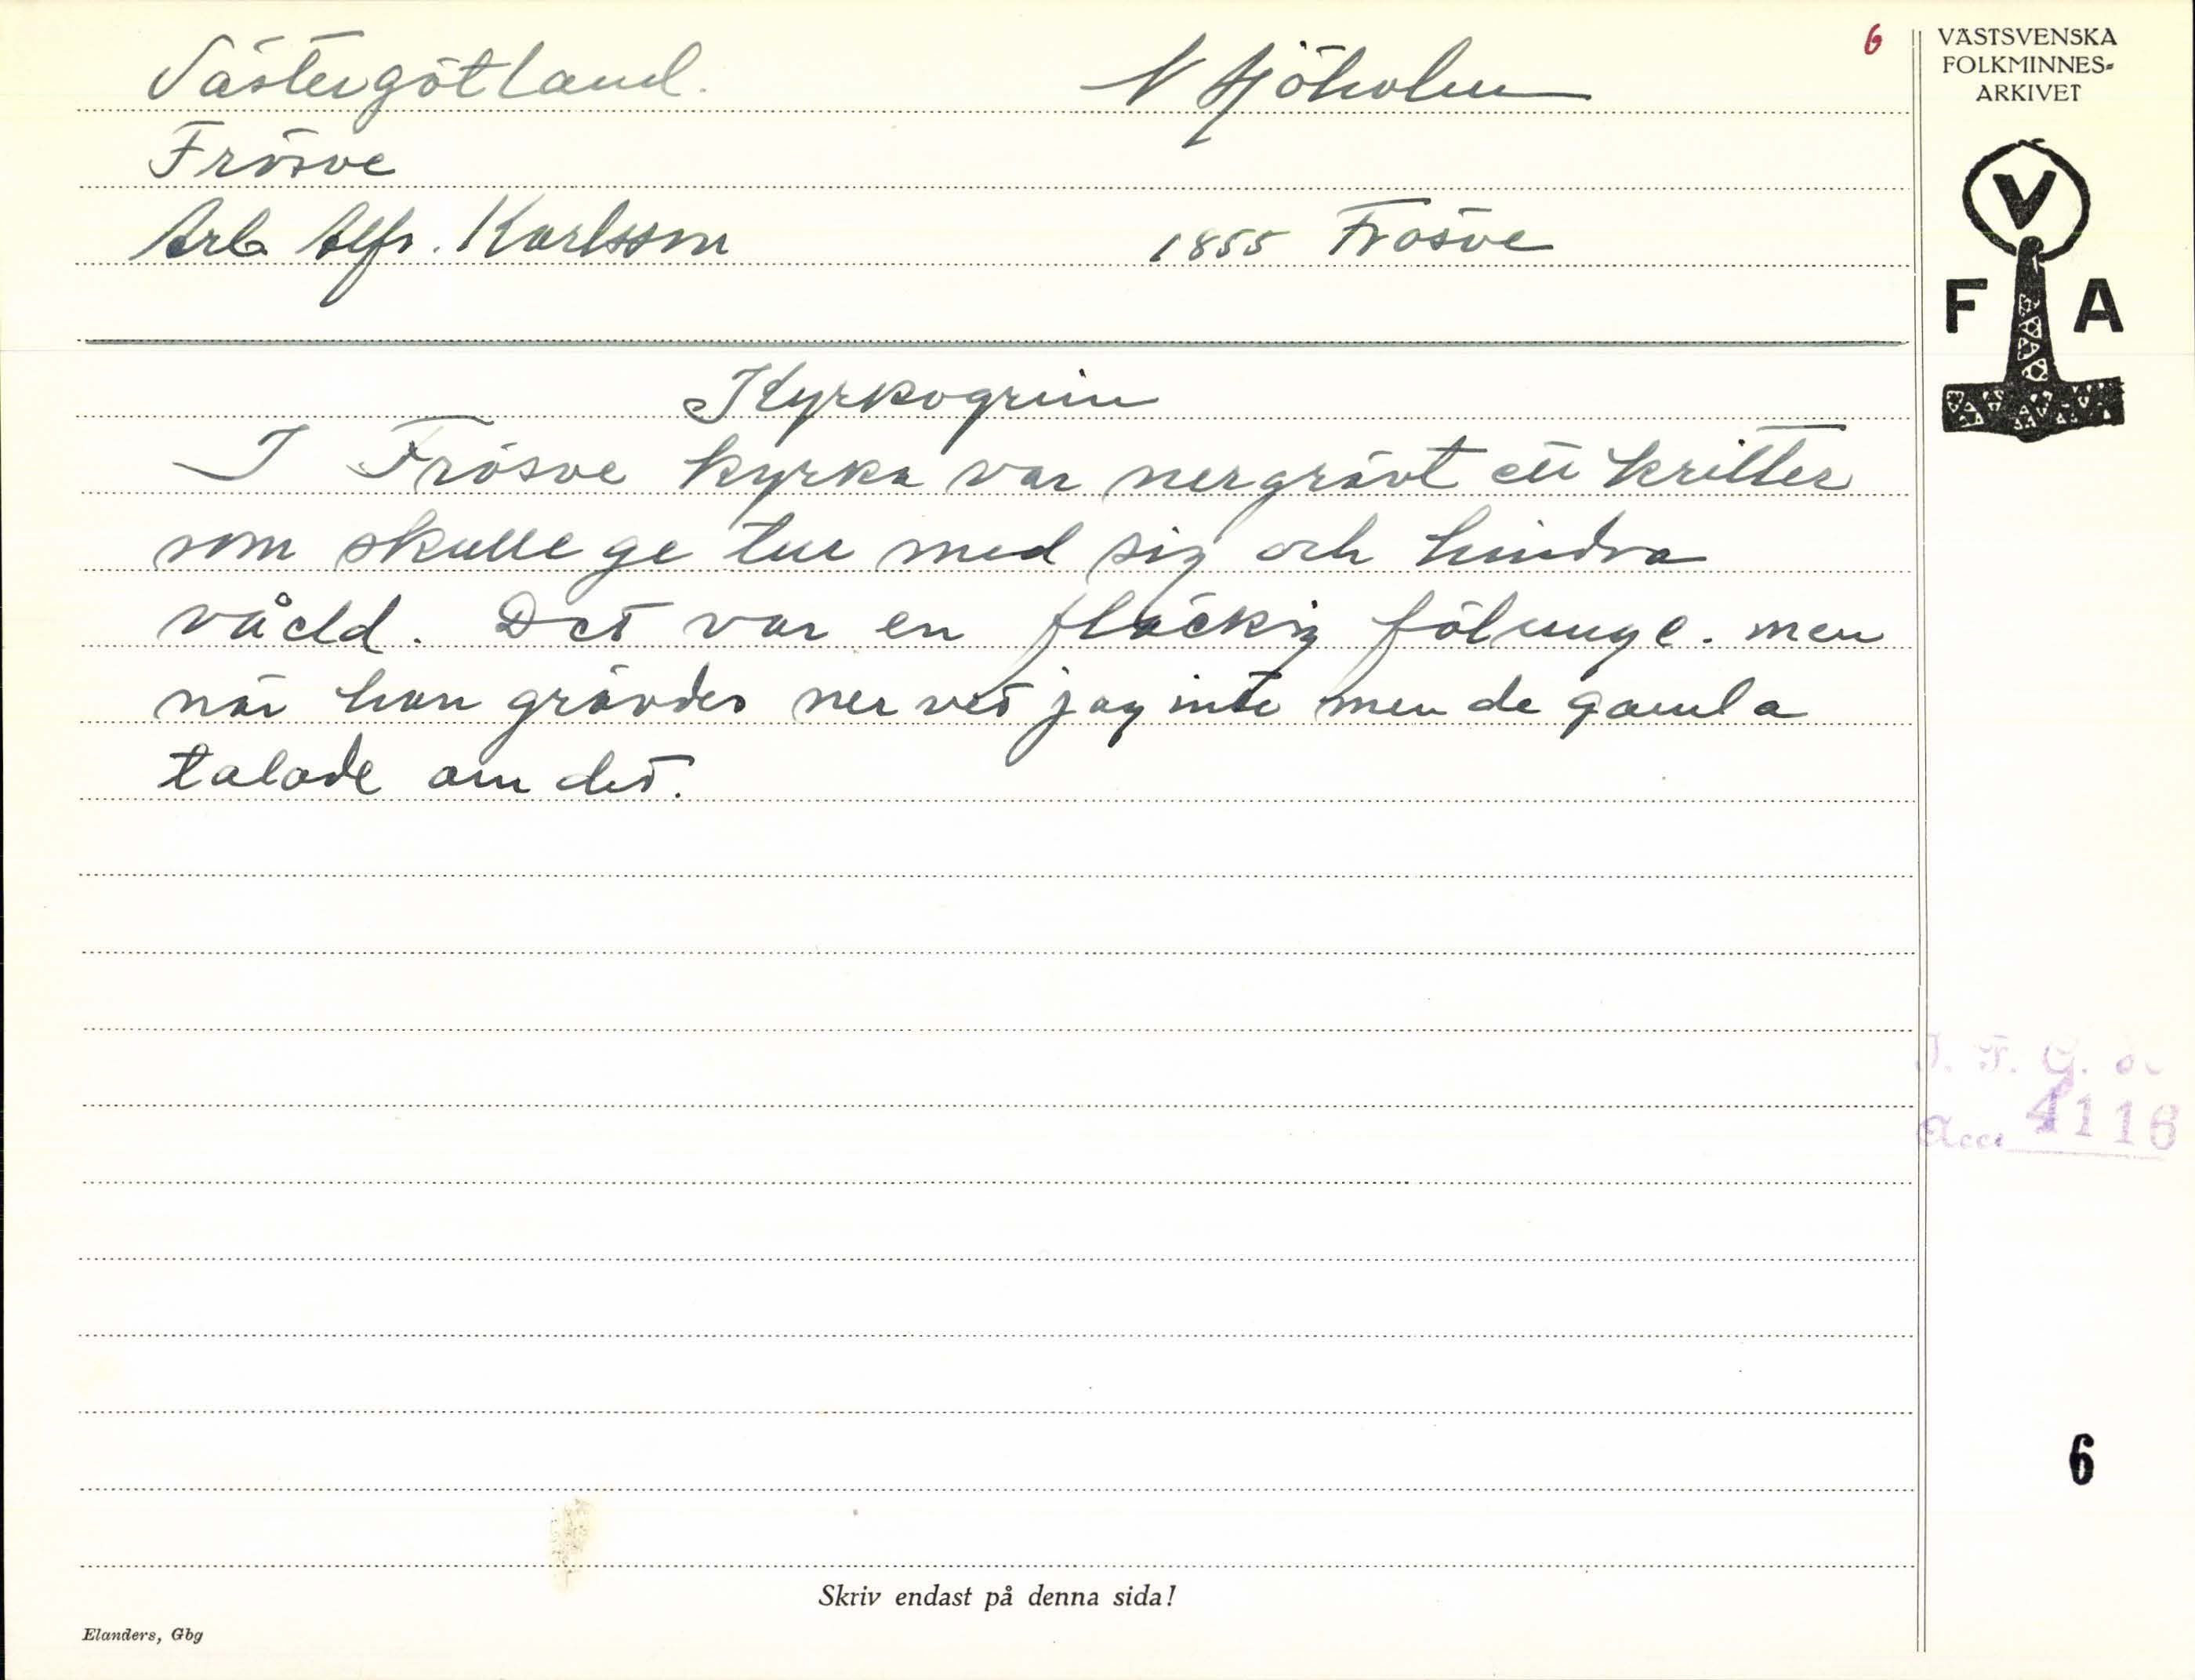 Västergötland. N Hjöholm 6
Frösve
Arb Alfr. Karlsson 1855 Frösve
Kyrkogrim
I Frösve kyrka var nergrävt ett kritter
som skulle ge tur med sig och hindra
våeld. Det var en fläckig fölunge. men
när han grävdes ner vet jag inte men de gamla
talade om det.
VÄSTSVENSKA
FOLKMINNES-
ARKIVET
V
F A
I. F. G.
Acc. 4116
6
Skriv endast på denna sida!
Elanders, Gbg